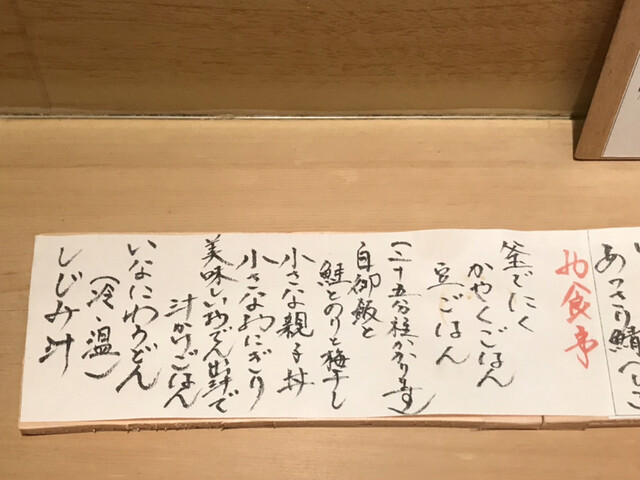 あっさり鯖
お食事
釜でにく
かやくごはん
豆ごはん
(二十五分程かかります)
白御飯と
鮭とのりと梅干し
小さな親子丼
小さなおにぎり
美味しいおでん出汁で
汁かけごはん
いなにわうどん
(冷・温)
しじみ汁